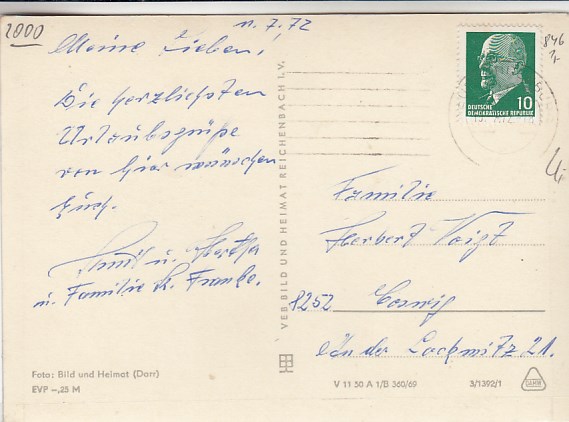 2000
11.7.72
Meine Lieben!
Die herzlichsten
Urlaubsgrüße
von hier wünschen
Euch.
u.
u. Familie K. Franke.
Familie
Herbert Voigt
8252 Coswig
An der Lockwitz 21.
10
DEUTSCHE
DEMOKRATISCHE REPUBLIK
846
VEB BILD UND HEIMAT REICHENBACH I. V.
Foto: Bild und Heimat (Darr)
EVP –,25 M
V 11 50 A 1/B 360/69
3/1392/1